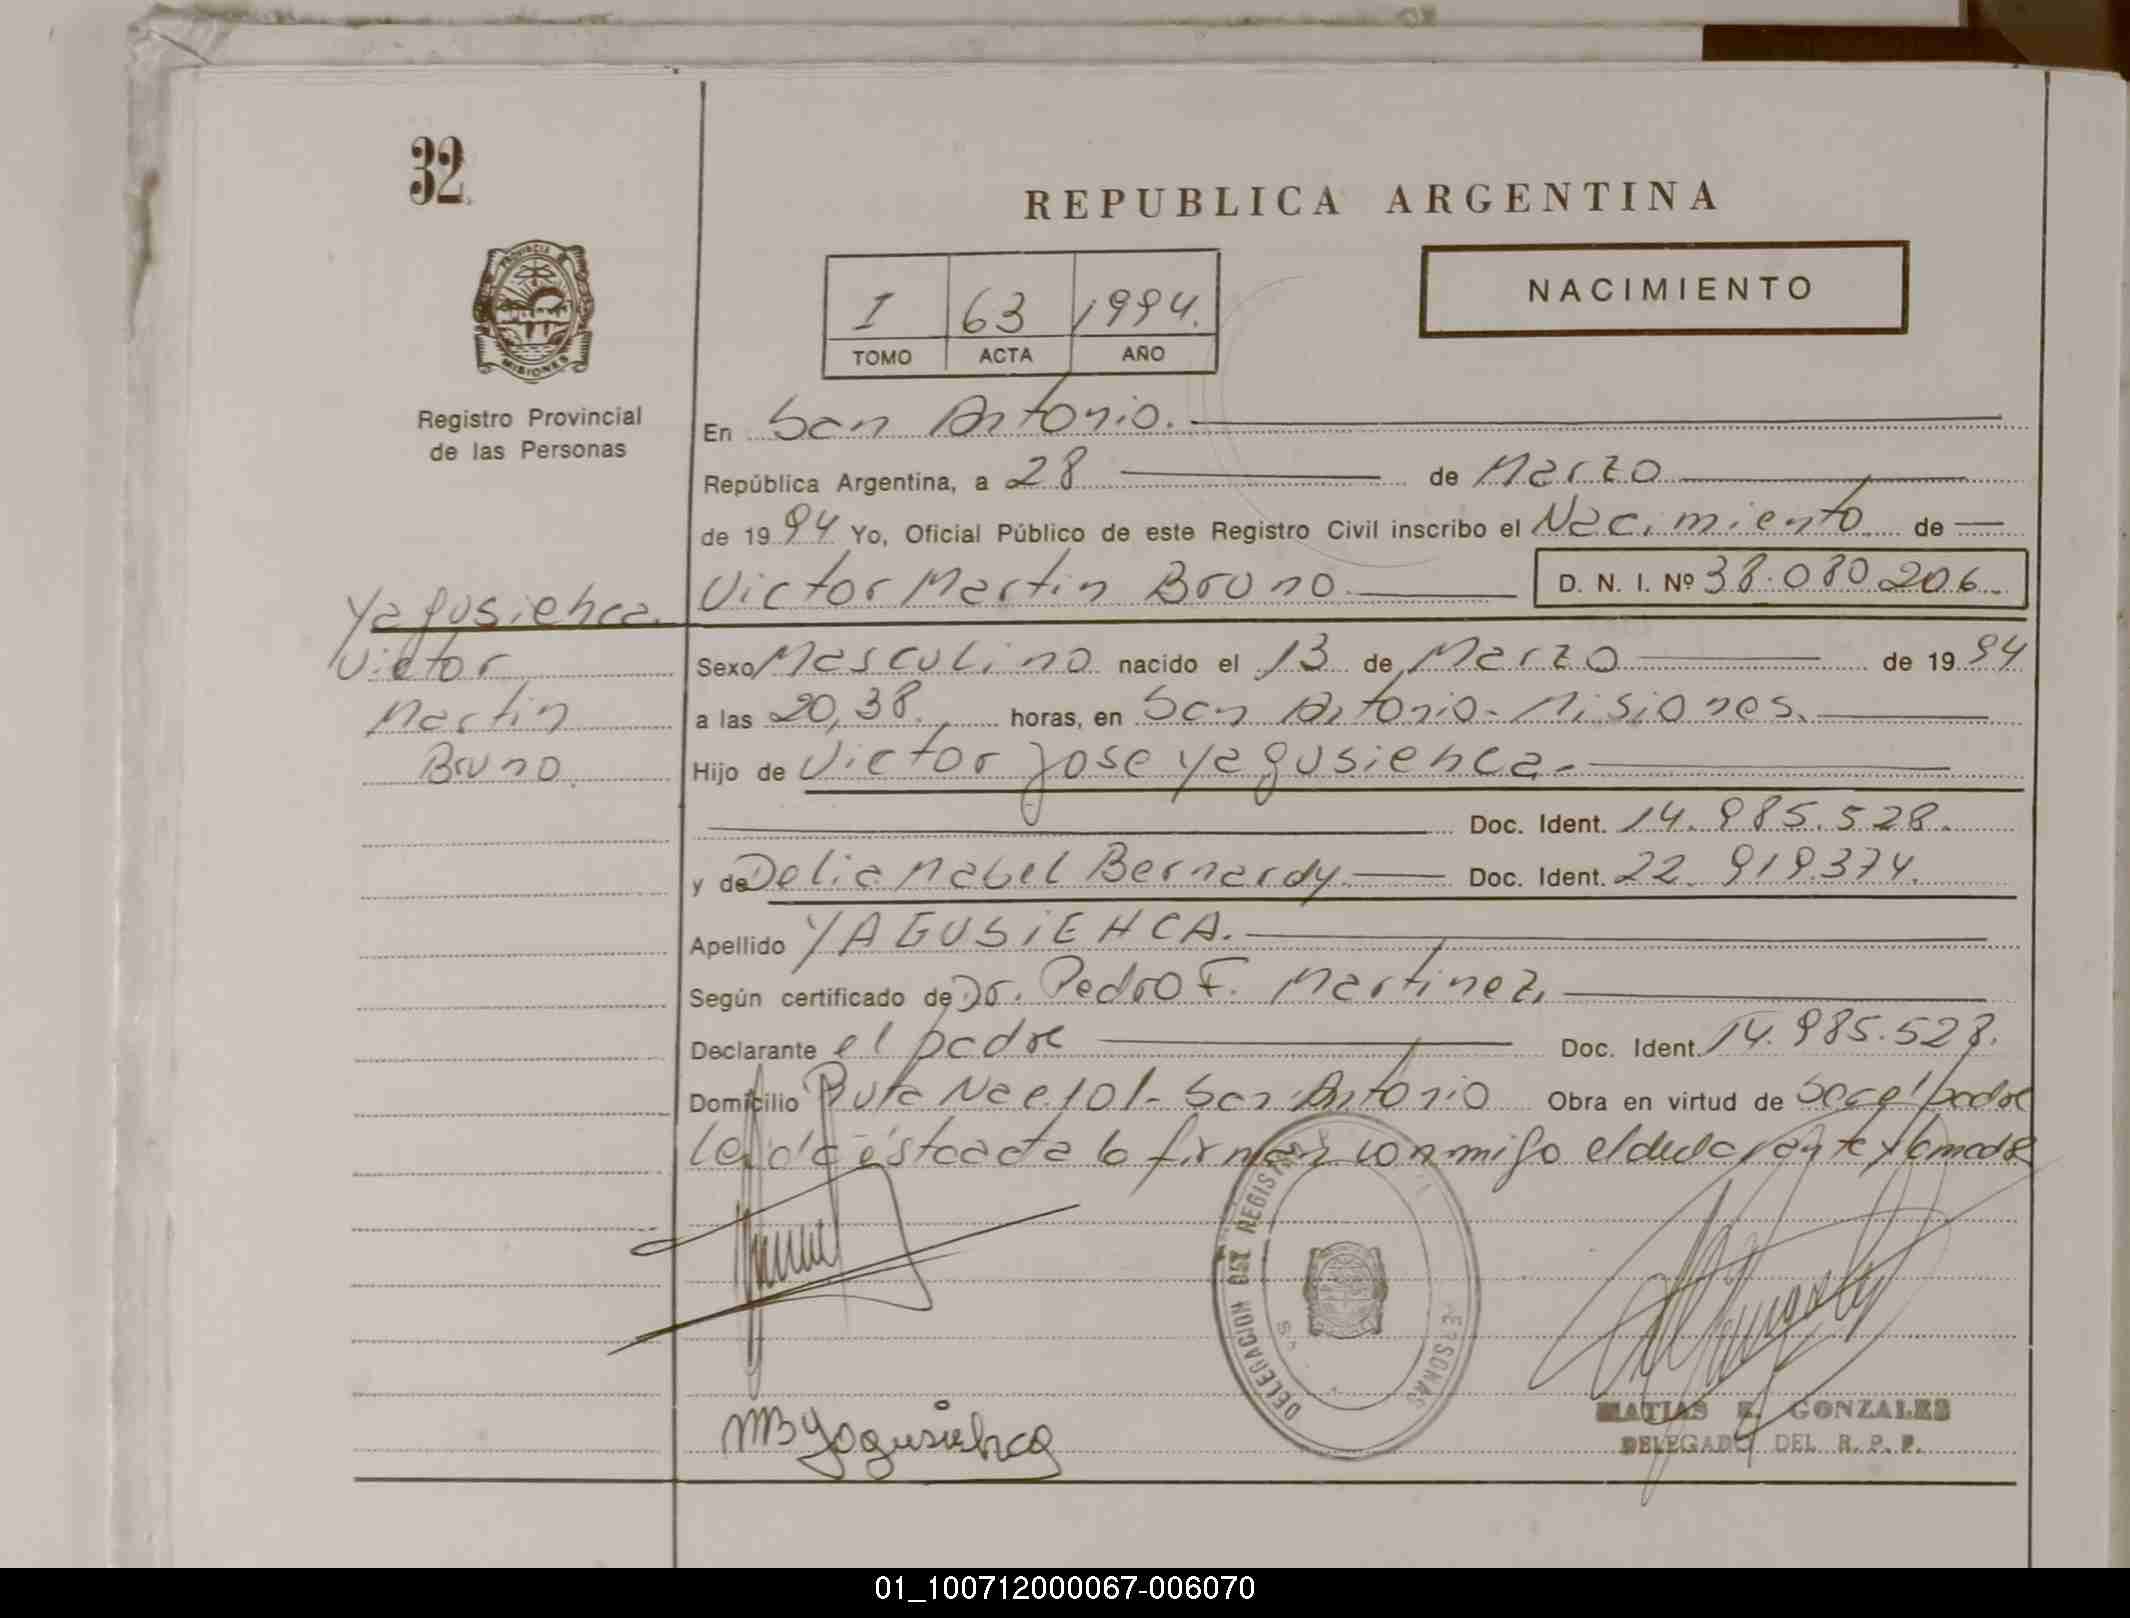 32
REPUBLICA ARGENTINA
PROVINCIA DE
MISIONES
Registro Provincial
de las Personas
NACIMIENTO
I 63 1994.
TOMO ACTA AÑO
En San Antonio.
República Argentina, a 28 de Marzo
de 1994 Yo, Oficial Público de este Registro Civil inscribo el Nacimiento de
Victor Martin Bruno. D. N. I. Nº 38.080.206
Yagusiehca.
Victor
Martin
Bruno.
Sexo Masculino nacido el 13 de Marzo de 1994
a las 20,38. horas, en San Antonio - Misiones.
Hijo de Victor Jose Yagusiehca.
Doc. Ident. 14.985.528.
y de Delia Mabel Bernardy. Doc. Ident. 22.919.374.
Apellido YAGUSiEHCA.
Según certificado de Dr. Pedro F. Martinez,
Declarante el padre Doc. Ident. 14.985.528.
Domicilio Ruta Nac. 101 - San Antonio Obra en virtud de Ser el padre
Leida esta acta la firman conmigo el declarante y la madre
DELEGACION DEL REGISTRO PERSONAS
MB Yagusiehca
MATIAS E. GONZALES
DELEGADO DEL R. P. P.
01_100712000067-006070